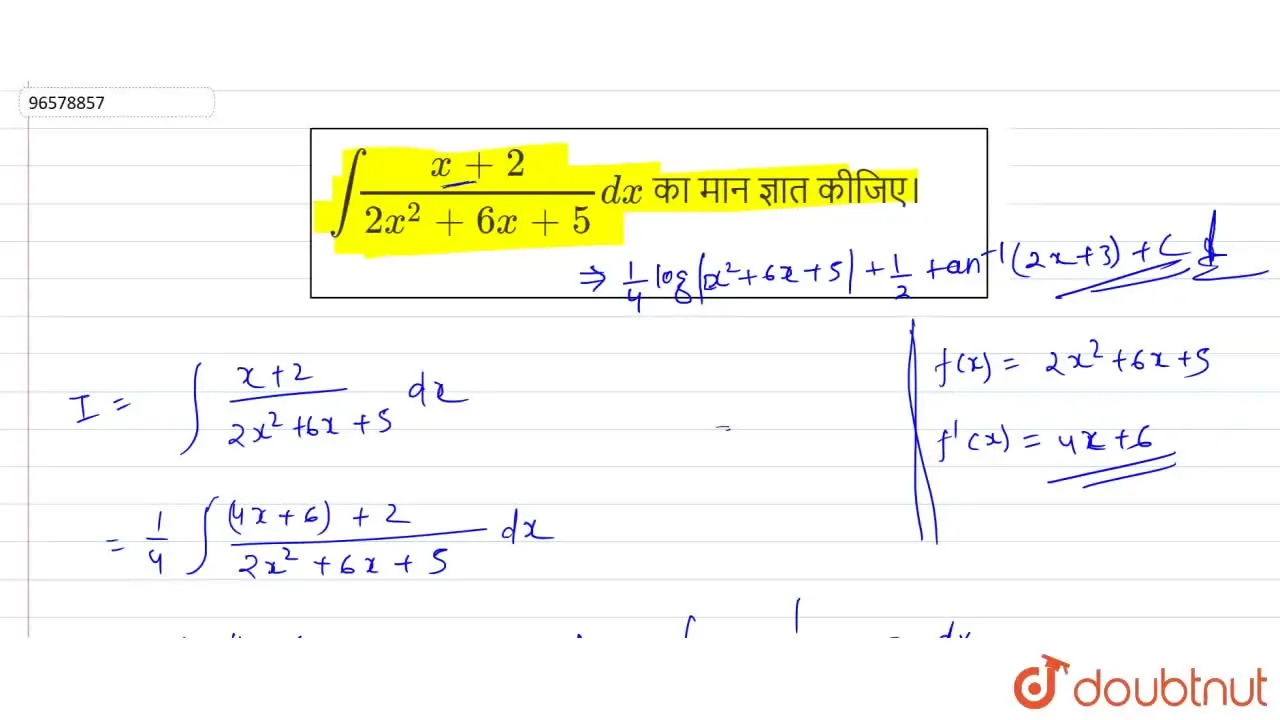 96578857
∫ x + 2 / 2x² + 6x + 5 dx का मान ज्ञात कीजिए।
⇒ 1/4 log|2x²+6x+5| + 1/2 tan⁻¹(2x+3) + C
I = ∫ x+2 / 2x²+6x+5 dx
f(x) = 2x²+6x+5
=
f'(x) = 4x+6
= 1/4 ∫ (4x+6) + 2 / 2x² + 6x + 5 dx
dx
doubtnut